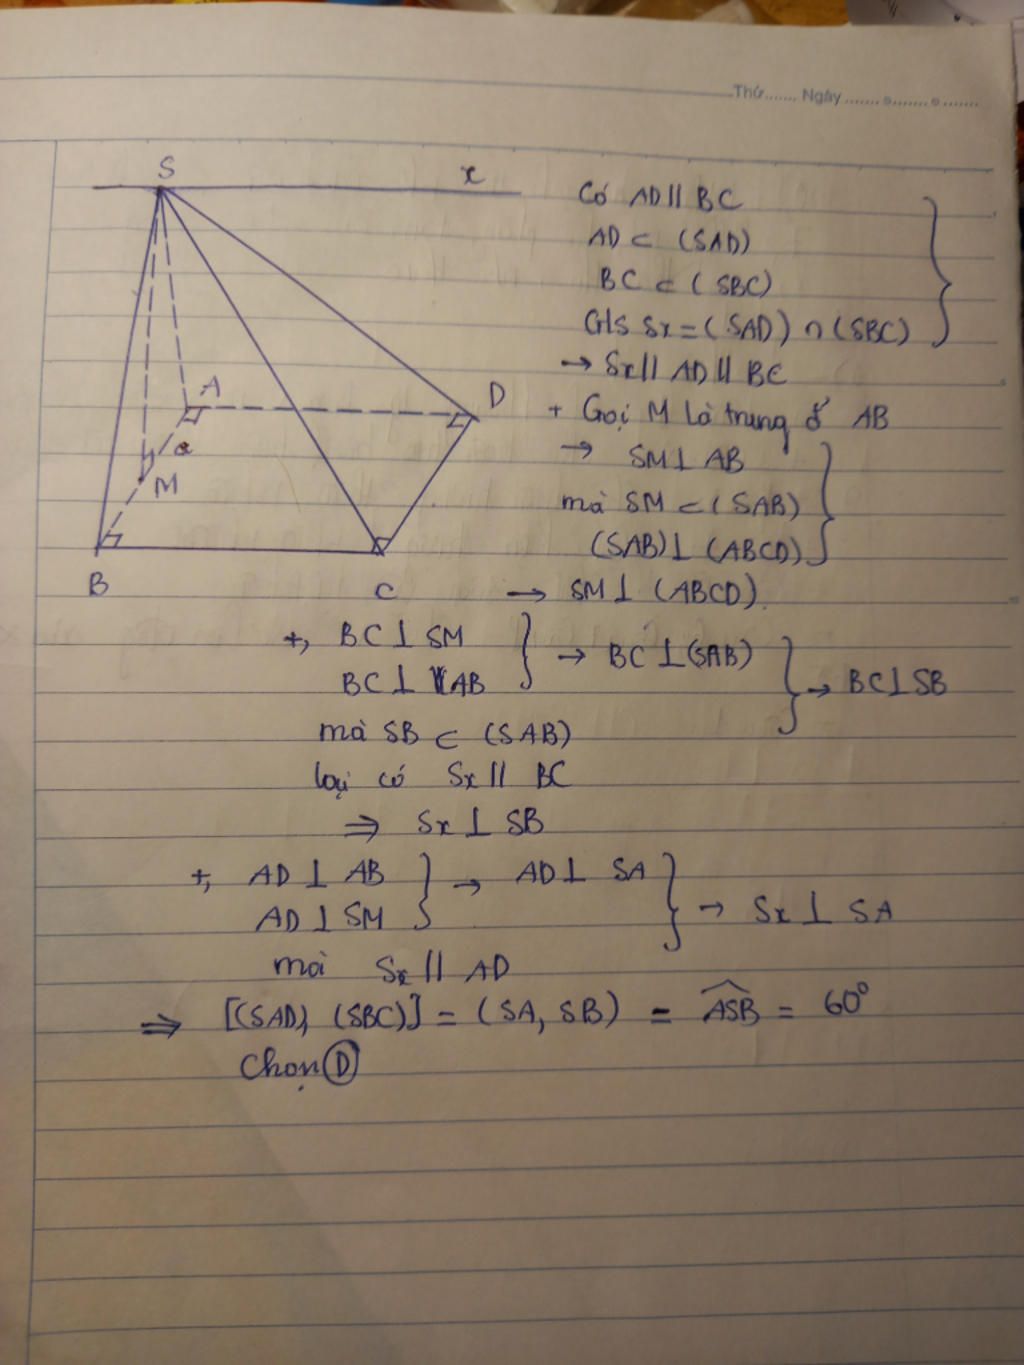 Thứ....... Ngày.......
S
x
A
D
a
M
B
C
Có AD // BC
AD ⊂ (SAD)
BC ⊂ (SBC)
G/s Sx = (SAD) ∩ (SBC)
→ Sx // AD // BC
+ Gọi M là trung đ' AB
→ SM ⊥ AB
mà SM ⊂ (SAB)
(SAB) ⊥ (ABCD)
→ SM ⊥ (ABCD)
+, BC ⊥ SM
BC ⊥ AB
→ BC ⊥ (SAB)
→ BC ⊥ SB
mà SB ⊂ (SAB)
lại có Sx // BC
⇒ Sx ⊥ SB
+, AD ⊥ AB
AD ⊥ SM
→ AD ⊥ SA
→ Sx ⊥ SA
mà Sx // AD
⇒ [(SAD), (SBC)] = (SA, SB) = ASB = 60°
Chọn D